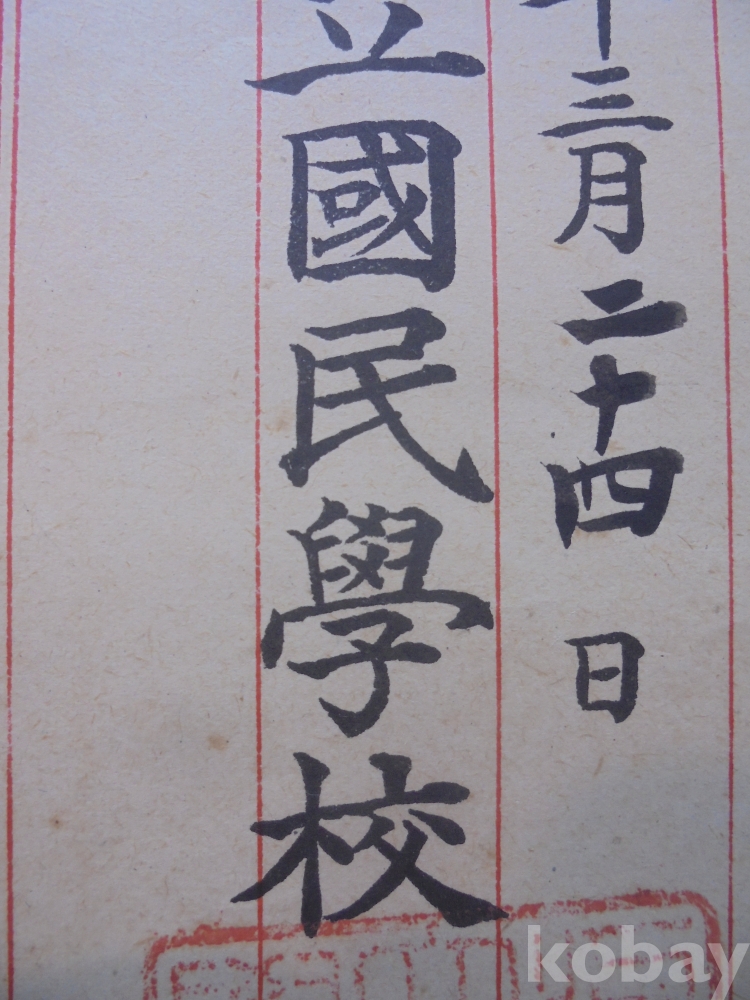 年三月二十四日
立國民學校
kobay